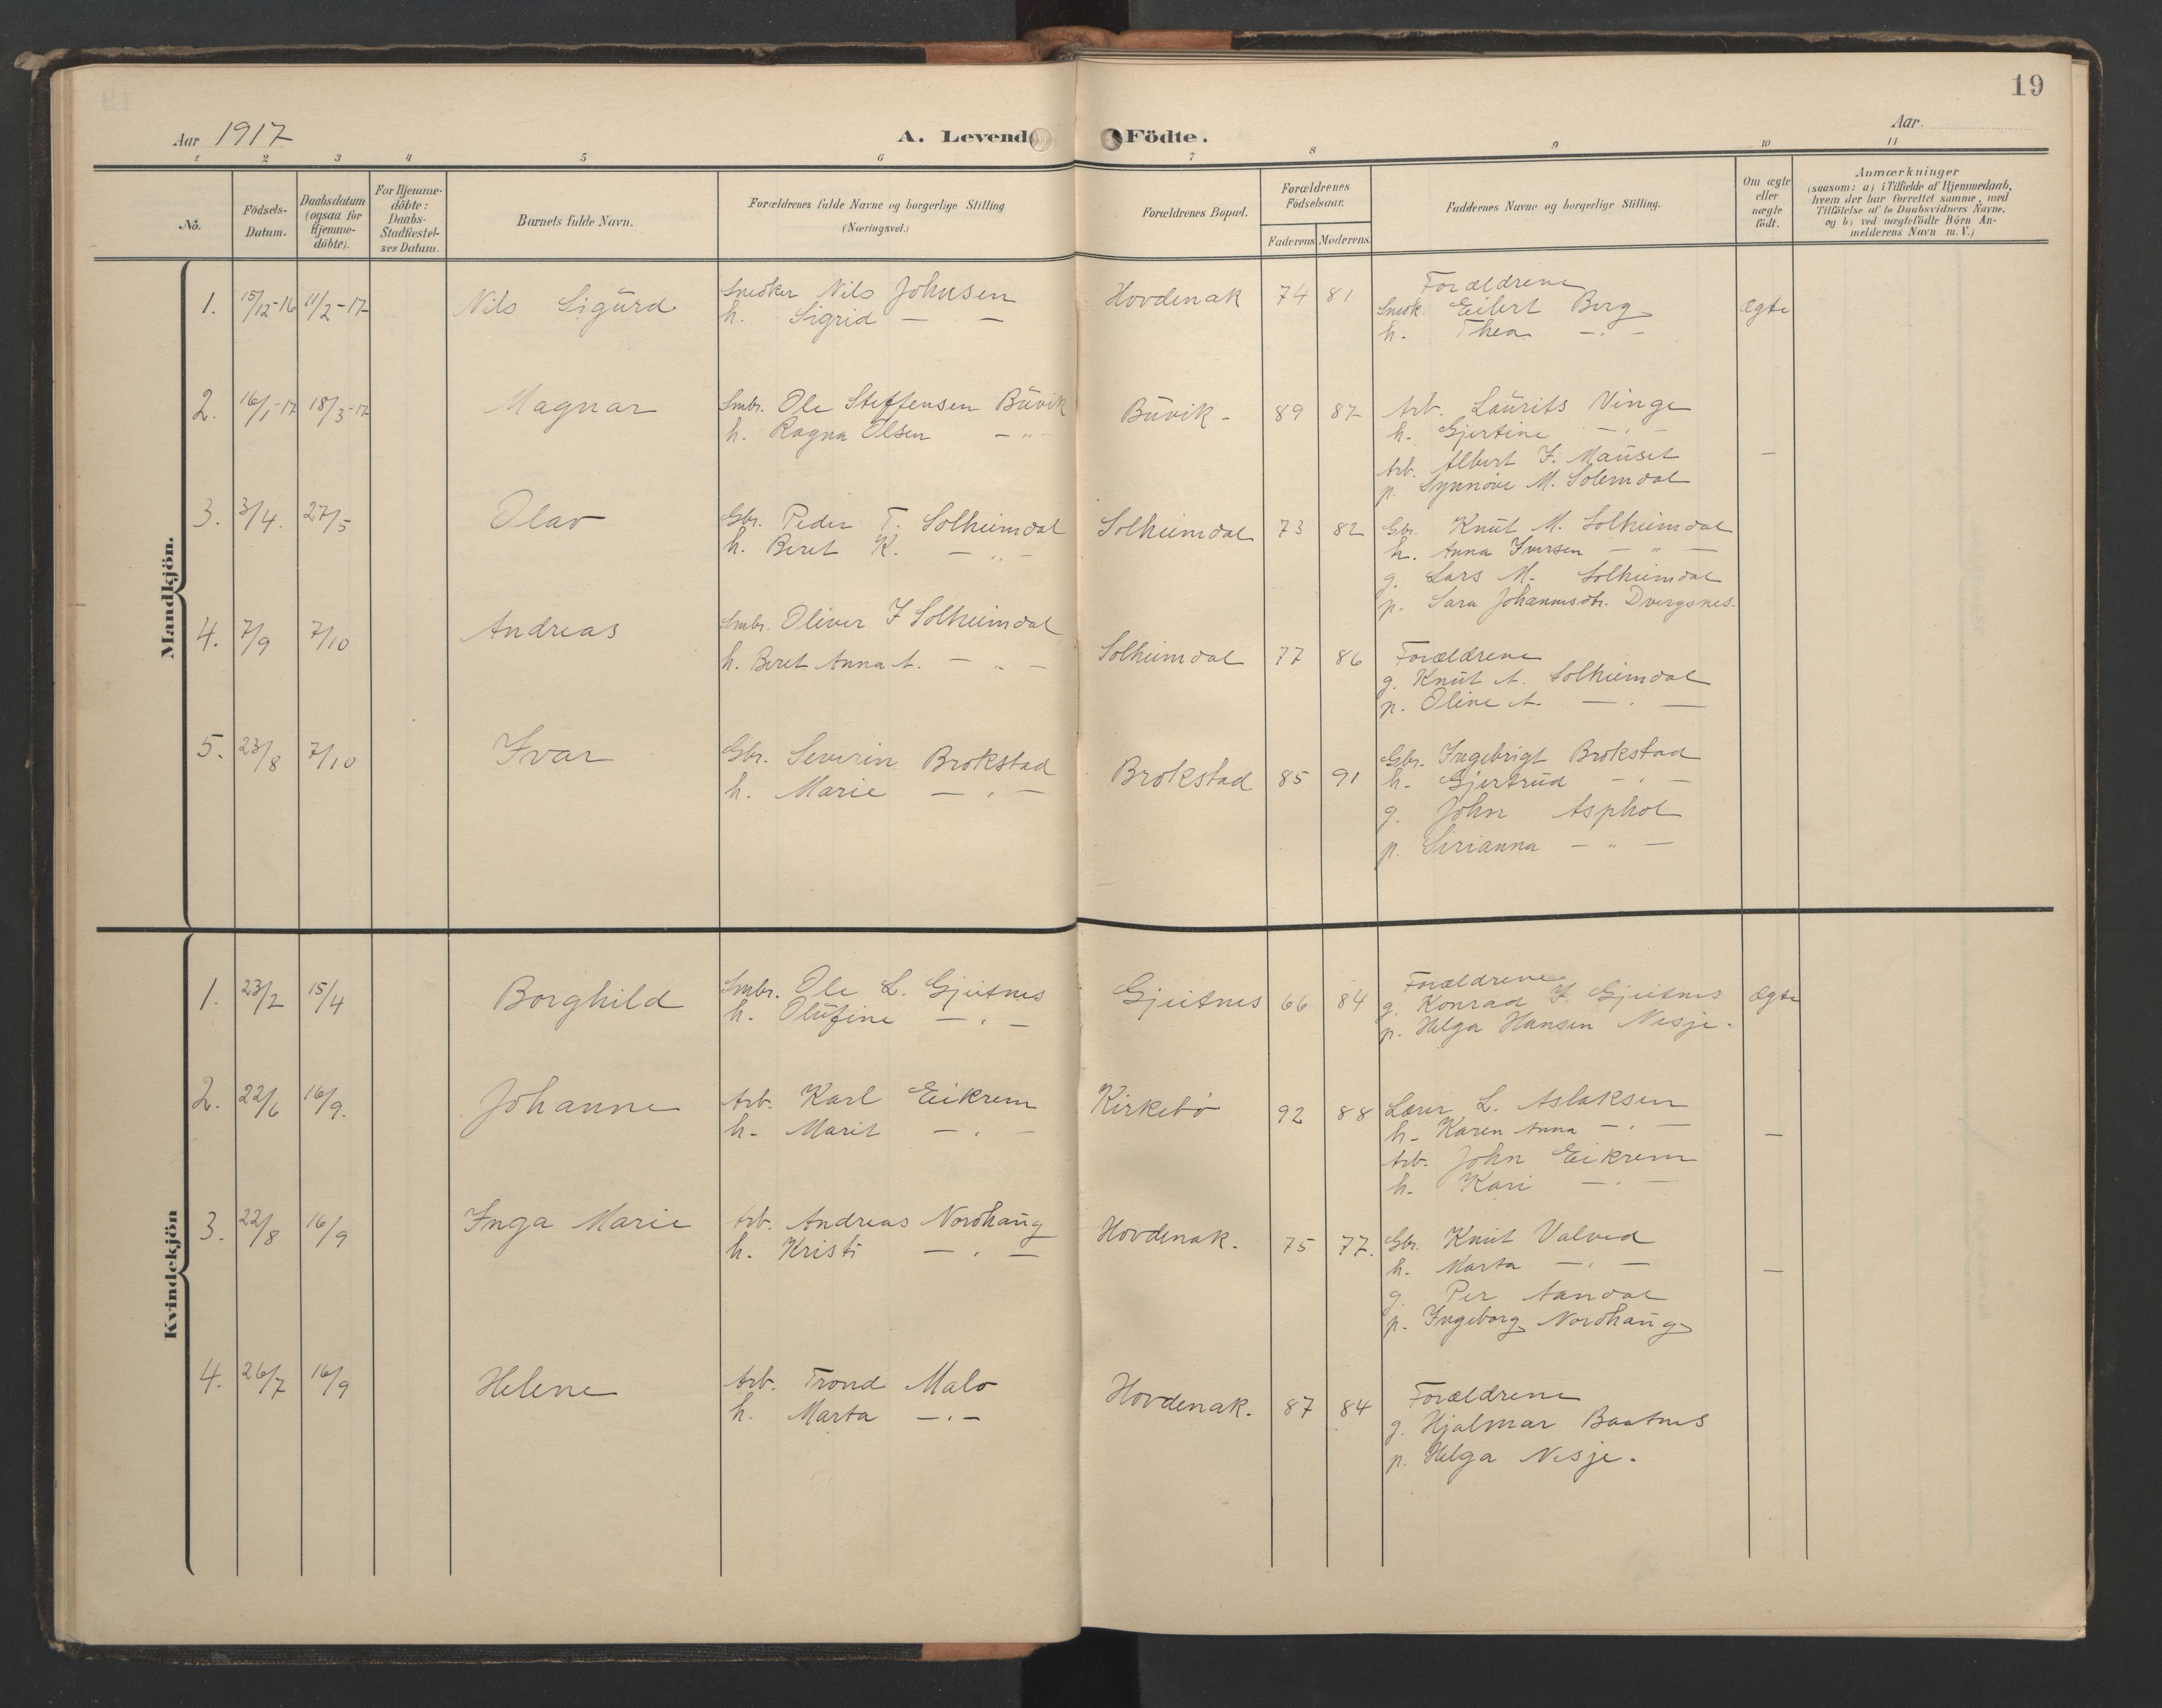 19
Aar 1917
A. Levende
Födte.
Aar
1 2 3 4 5 6 7 8 9 10 11
No.
Födsels-Datum.
Daabsdatum (ogsaa for Hjemme-döbte).
For Hjemme-döbte: Daabs-Stadfæstel-ses Datum.
Barnets fulde Navn.
Forældrenes fulde Navne og borgerlige Stilling
(Næringsvei.)
Forældrenes Bopæl.
Forældrenes Födselsaar.
Faderens Moderens
Faddernes Navne og borgerlige Stilling.
Om ægte eller uægte födt.
Anmærkninger
(saasom: a) i Tilfælde af Hjemmedaab,
hvem der har forrettet samme, med
Tilföielse af to Daabsvidners Navne,
og b) ved uægtefödte Börn An-
melderens Navn m. V.)
Mandkjön.
1. 15/12-16 11/2-17 Nils Sigurd
Snedker Nils Johnsen
h. Sigrid — —
Hovdenak 74 81
Forældrene
Snedk. Eilert Berg
h. Thea — " —
Ægte
2. 16/1-17 18/3-17 Magnar
Smbr. Ole Steffensen Buvik
h. Ragna Olsen — " —
Buvik - 89 87
Arb. Laurits Vinge
h. Gjertine — " —
Arb. Albert J. Mauset
p. Synnøve M. Solemdal
—
3. 3/4. 27/5 Olav
Gbr. Peder T. Solheimdal
h. Beret K. — " —
Solheimdal 73 82
Gbr. Knut M. Solheimdal
h. Anna Iversen — " —
g. Lars M. Solheimdal
p. Sara Johannesdtr. Dvergsnes.
4. 7/9 7/10 Andreas
Smbr. Oliver J Solheimdal
h. Beret Anna A. — " —
Solheimdal 77 86
Forældrene
g. Knut A. Solheimdal
p. Oline A. — " —
5. 23/8 7/10 Ivar
Gbr. Severin Brokstad
h. Marie — " —
Brokstad 85 91
Gbr. Ingebrigt Brokstad
h. Gjertrud — " —
g. John Asphol
p. Sirianna — " —
Kvindekjön
1. 23/2 15/4 Borghild
Smbr. Ole L. Gjeitnes
h. Olufine — " —
Gjeitnes 66 84
Forældrene
g. Konrad J. Gjeitnes
p. Helga Hansen Nesje.
Ægte
2. 22/6 16/9. Johanne
Arb. Karl Eikrem
h. Marit — " —
Kirkebö 92 88
Lærer L. Aslaksen
h. Karen Anna — " —
Arb. John Eikrem
h. Kari — " —
—
3. 22/8 16/9 Inga Marie
Arb. Andreas Nordhaug
h. Kristi — " —
Hovdenak. 75 77.
Gbr. Knut Valved
h. Marta — " —
g. Per Aandal
p. Ingeborg Nordhaug
—
4. 26/7 16/9 Helene
Arb. Trond Malo
h. Marta — " —
Hovdenak. 87 84
Forældrene
g. Hjalmar Baatnes
p. Helga Nesje.